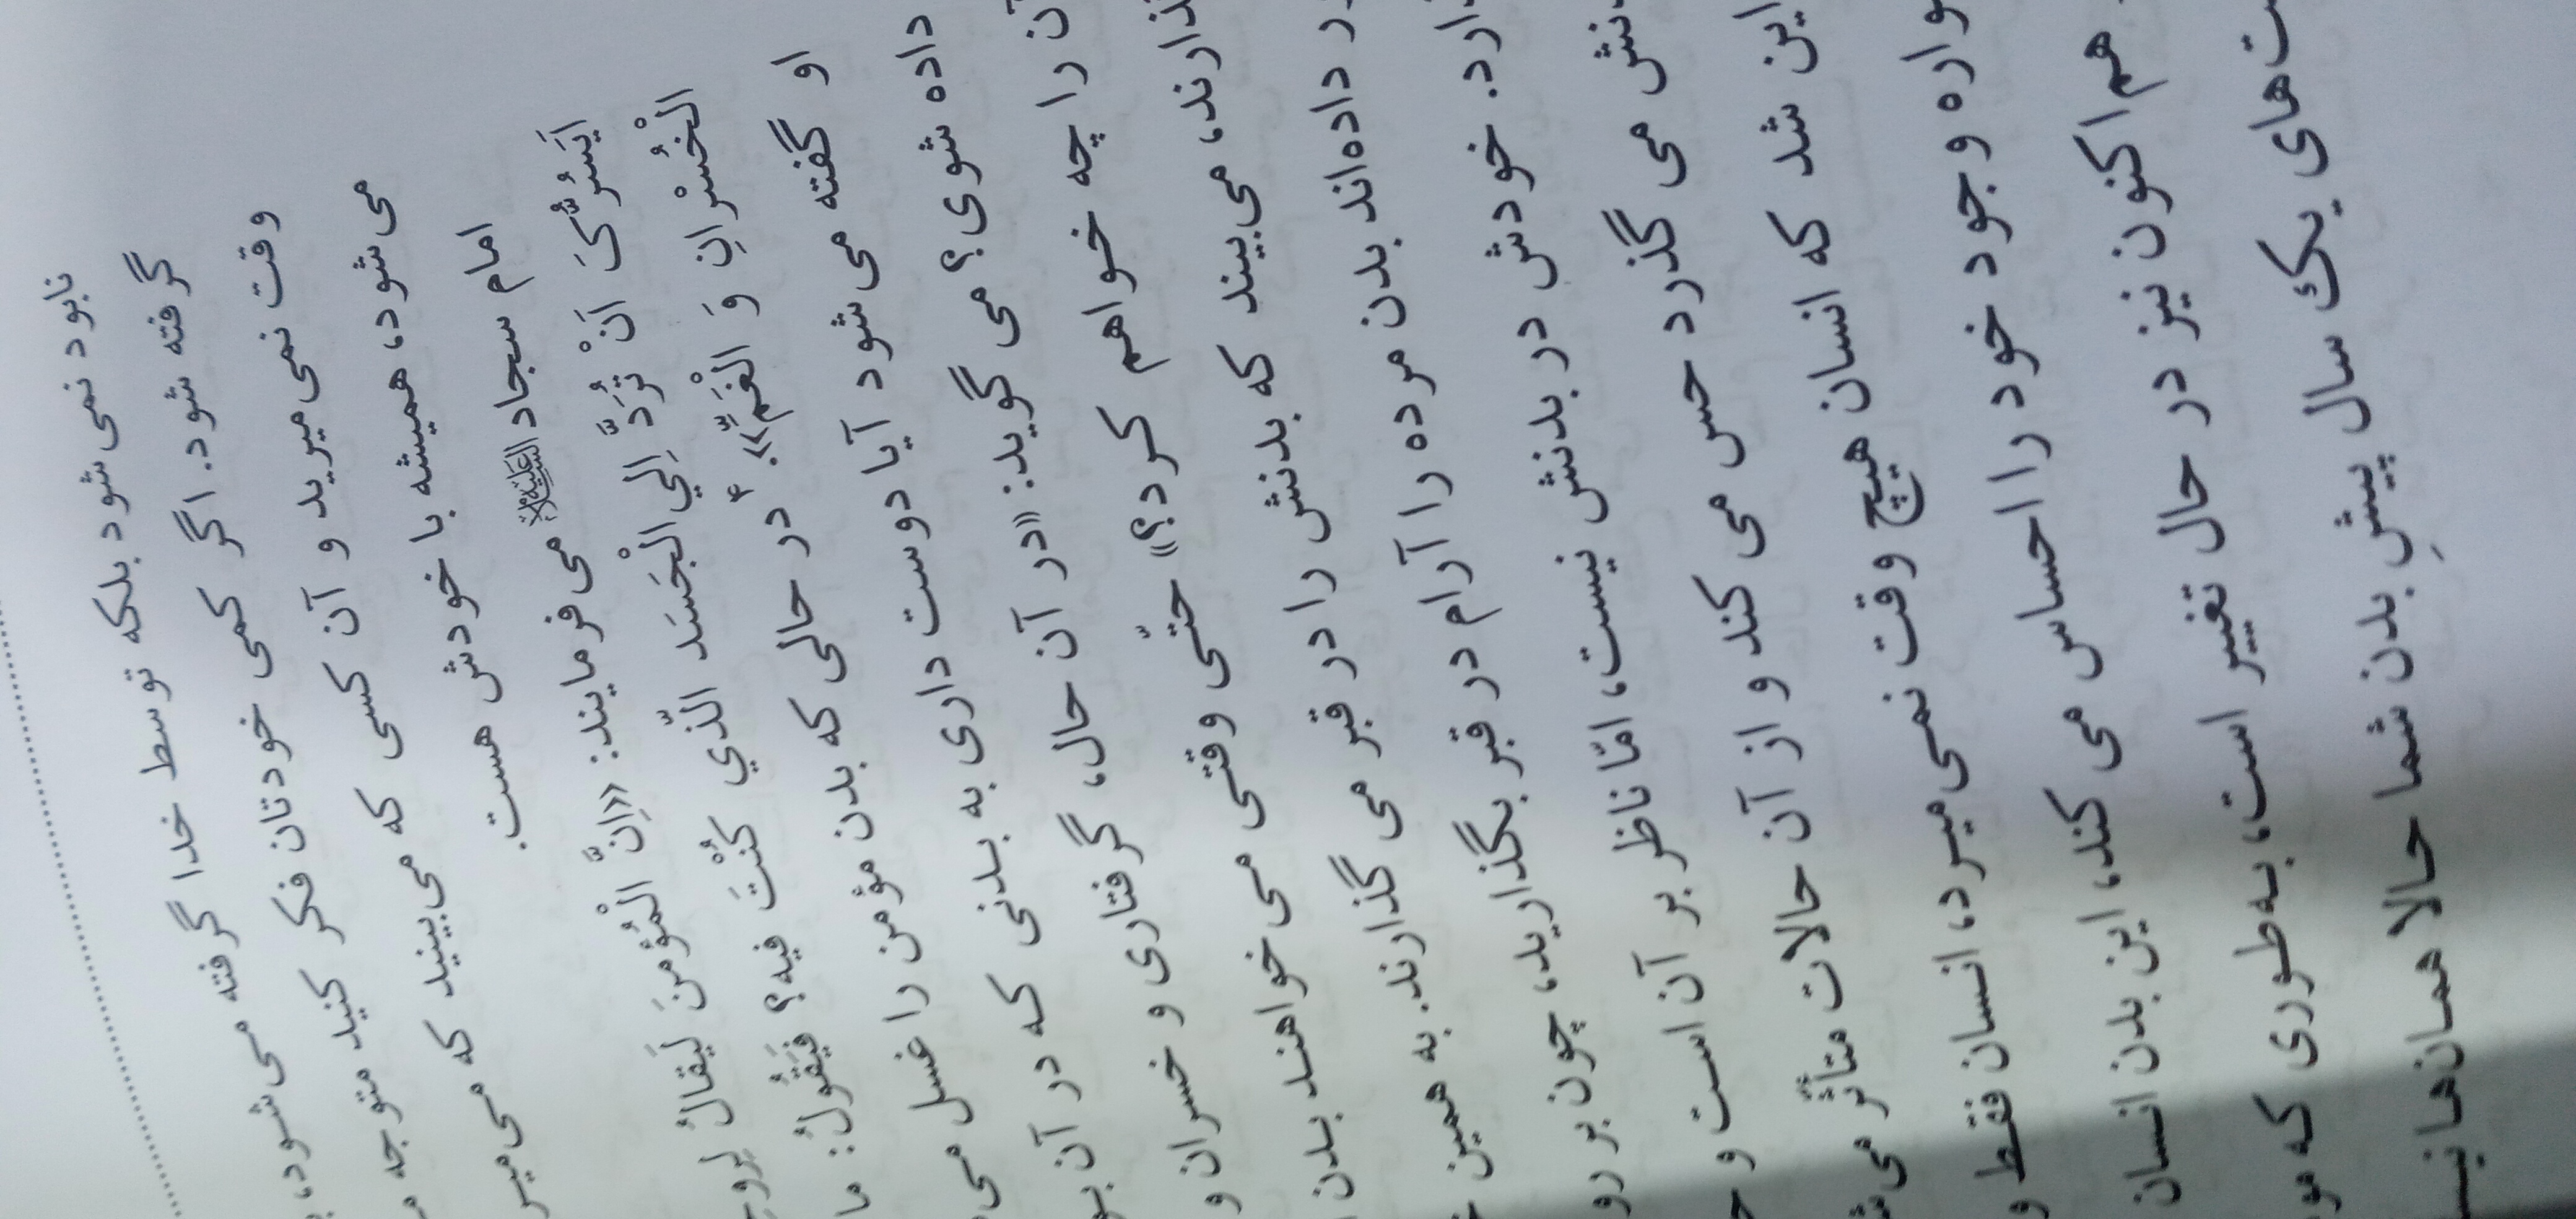 نابود نمی‌شود بلکه توسط خدا گرفته می‌شود،
گرفته شود. اگر کمی خودتان فکر کنید متوجه
وقت نمی‌میرید و آن کسی که می‌بینید که می‌میر
می‌شود، همیشه با خودش هست.
امام سجاد علیه‌السلام می‌فرمایند: «اِنَّ الْمُؤْمِنَ لَیُقالُ لِرُوحِ
اَیَسُرُّکَ اَنْ تُرَدَّ اِلَي الْجَسَدِ الَّذي کُنْتَ فیه؟ فَیَقُولُ: ما
الْخُسْرانِ وَ الْغَمِّ».۴ در حالی که بدن مؤمن را غسل می‌
او گفته می‌شود آیا دوست داری به بدنی که در آن بو
داده شوی؟ می‌گوید: «در آن حال، گرفتاری و خسران و
آن را چه خواهم کرد؟» حتّی وقتی می‌خواهند بدن
ذارند، می‌بیند که بدنش را در قبر می‌گذارند. به همین
ر داده‌اند بدن مرده را آرام در قبر بگذارید، چون بر رو
دارد. خودش در بدنش نیست، امّا ناظر بر آن است و
دنش می‌گذرد حس می‌کند و از آن حالات متأثّر می‌ش
این شد که انسان هیچ وقت نمی‌میرد، انسان فقط و
واره وجود خود را احساس می‌کند، این بدن انسان
هم‌اکنون نیز در حال تغییر است، به‌طوری که مو
ت‌های یک سال پیشِ بدن شما حالا همان‌ها نیس